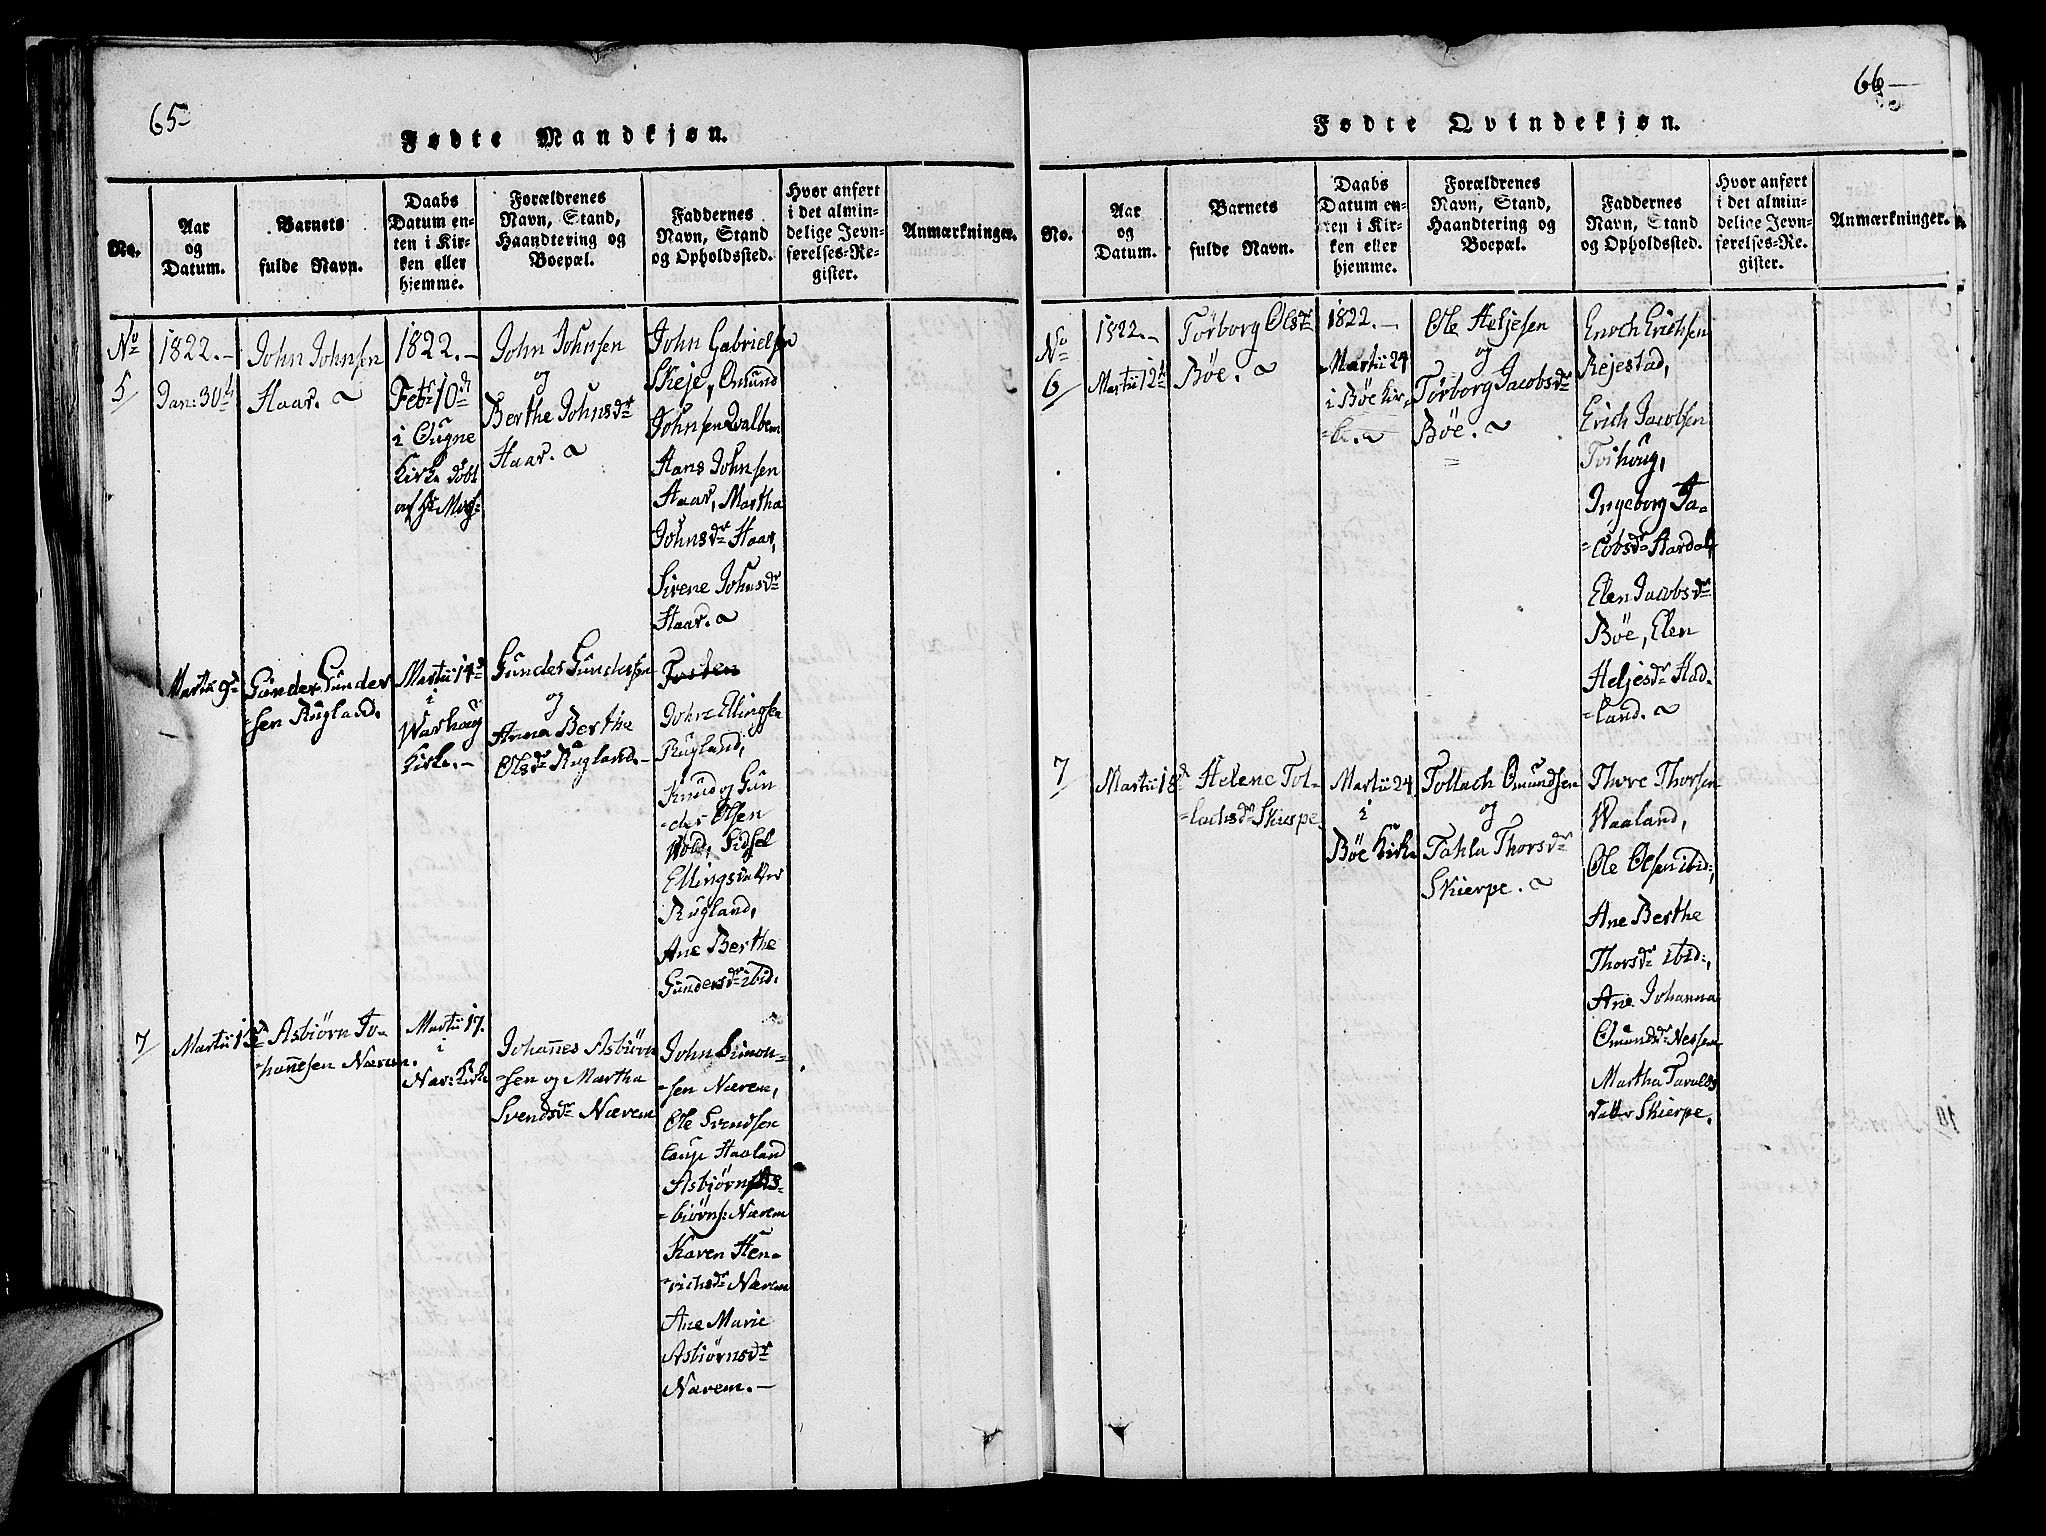 65
Fødte Mandkjøn.
No.
Aar
og
Datum.
Barnets
fulde Navn.
Daabs
Datum en-
ten i Kir-
ken eller
hjemme.
Forældrenes
Navn, Stand,
Haandtering og
Boepæl.
Faddernes
Navn, Stand
og Opholdssted.
Hvor anført
i det almin-
delige Jevn-
førelses-Re-
gister.
Anmærkninger.
No
5
1822.-
Jan: 30te
John Johnsen
Haar.
1822.-
Febr 10de
i Ougne
Kirke døbt
af Hr
John Johnsen
og
Berthe Johnsdr
Haar.
John Gabrielsen
Skeje, Omund
Johnsen Qvalbem
Hans Johnsen
Haar, Martha
Johnsdr Haar,
Sirene Johnsdr
Haar.
Martii 9de
Gunder Gunder
sen Rugland.
Martii 14de
i
Warhoug
Kirke.-
Gunder Gundersen
og
Anna Berthe
Olsdr Rugland.-
Torsten
John Ellingsen
Rugland,
Knud og Gun
der Olsen
Wold, Sidsel
Ellingsdatter
Rugland,
Ane Berthe
Gundersdr ibid.
7
Martii 13de
Asbiørn Jo-
hannesen Nærem.
Martii 17.
i
Nær: Kirke
Johannes Asbiørn
sen og Martha
Svendsdr Nærem
John Simon-
sen Nærem,
Ole Svendsen
Haaland
Asbiørn As-
biørns: Nærem
Karen Hen-
richsdr Nærem
Ane Marie
Asbiørnsdr
Nærem.-
66
Fødte Qvindekjøn.
No.
Aar
og
Datum.
Barnets
fulde Navn.
Daabs
Datum en-
ten i Kir-
ken eller
hjemme.
Forældrenes
Navn, Stand,
Haandtering og
Boepæl.
Faddernes
Navn, Stand
og Opholdssted.
Hvor anført
i det almin-
delige Jevn-
førelses-Re-
gister.
Anmærkninger.
No
6
1822.-
Martii 12te
Tørborg Olsdr
Bøe.
1822.-
Martii 24
i Bøe Kir-
ke.
Ole Heljesen
og
Tørborg Jacobsdr
Bøe.
Enoch Erichsen
Rejestad,
Erich Jacobsen
Tvihoug,
Ingeborg Ja-
cobsdr Aardal,
Elen Jacobsdr
Bøe, Elen
Heljesdr Had-
land.
7
Martii 18de
Helene Tol-
lachsdr Skierpe.
Martii 24
i
Bøe Kirke
Tollach Omundsen
og
Tahla Thorsdr
Skierpe.
Thore Thorsen
Waaland,
Ole Olsen ibid:,
Ane Berthe
Thorsdr ibid:,
Ane Johanna
Omundsdr Nessem
Martha Tavalds
datter Skierpe.